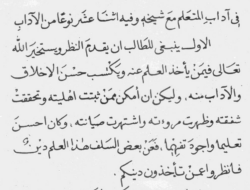 في آداب المتعلم مع شيخه وفيه اثنا عشر نوعا من الآداب
الاول ينبغي للطالب ان يقدم النظر ويستخير الله
تعالى فيمن يأخذ العلم عنه ويكتسب حسن الاخلاق
والآداب منه، وليكن ان امكن ممن ثبتت اهليته وتحققت
شفقته وظهرت مروءته واشتهرت صيانته، وكان احسن
تعليما واجود تفهيما، فعن بعض السلف هذا العلم دين
فانظروا عمن تأخذون دينكم.